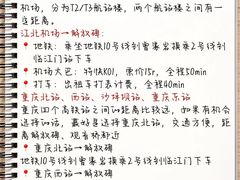 机场，分为T2/T3航站楼，两个航站楼之间有一定距离。
江北机场→解放碑：
地铁：乘坐地铁10号线到曾家岩换乘2号线到临江门站下车
机场大巴：特快K01，票价15r，全程50min
打车：出租车打表计费，全程40min
重庆北站、西站、沙坪坝站、重庆东站
重庆四个高铁站之间的距离比较远，如果有机会选择的话，最好是选择重庆北站，交通方便，距离解放碑、观音桥都近
重庆北站→解放碑
地铁10号线到曾家岩换乘2号线到临江门下车
重庆西站→解放碑